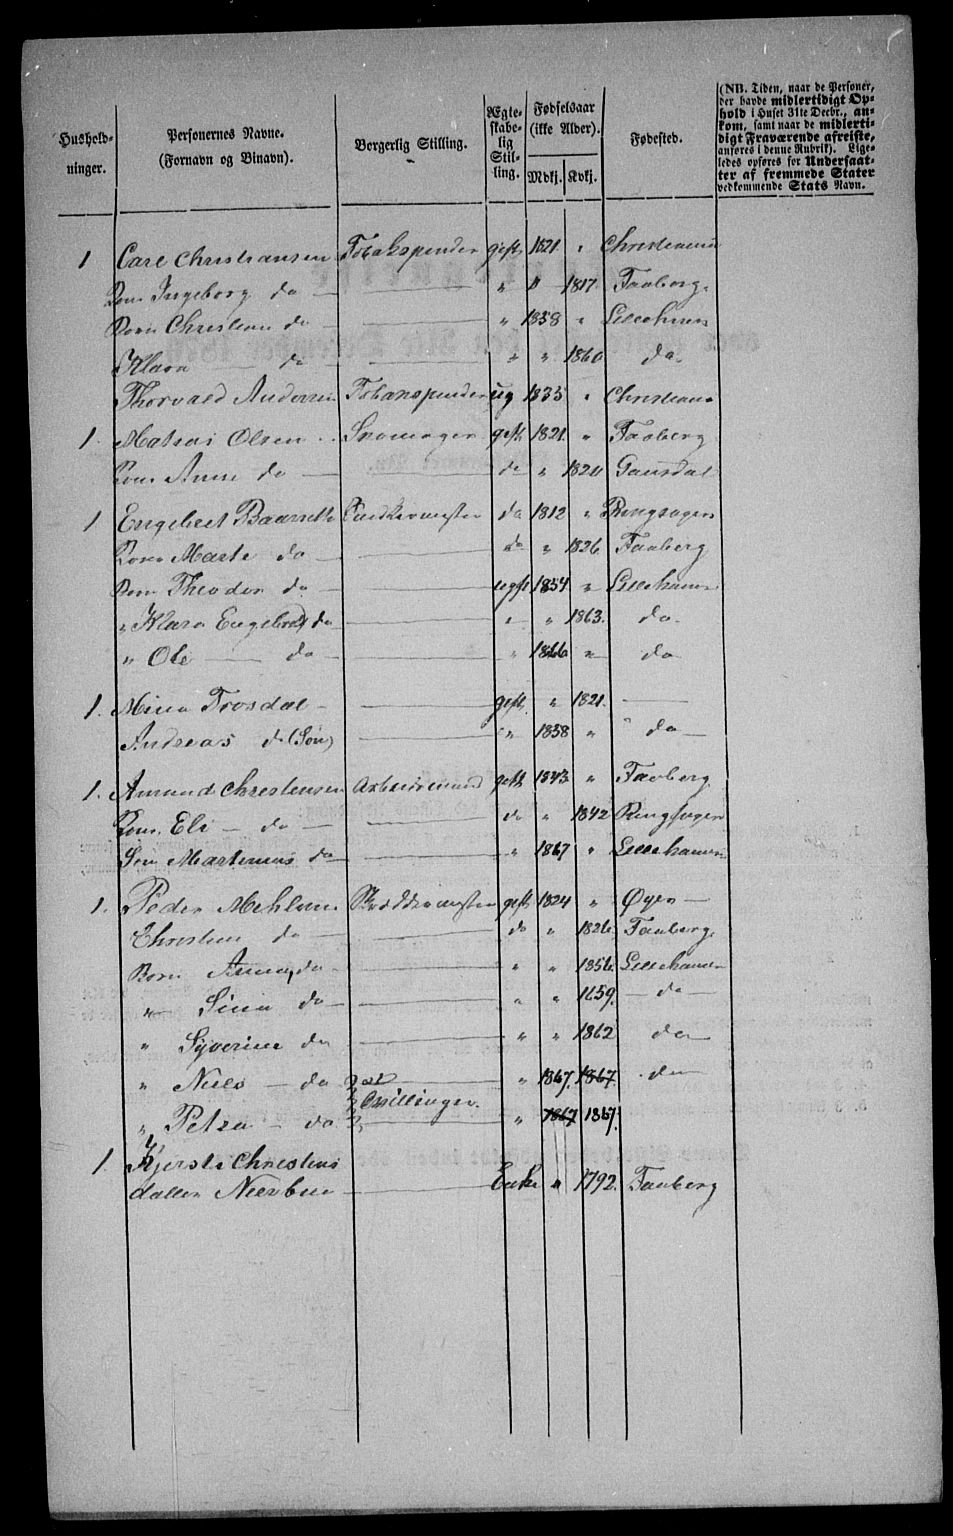 Hushold-
ninger.
Personernes Navne.
(Fornavn og Binavn).
Borgerlig Stilling.
Ægte-
skabe-
lig
Stil-
ling.
Fødselsaar
(ikke Alder).
Mdkj. Kvkj.
Fødested.
(NB. Tiden, naar de Personer,
der havde midlertidigt Op-
hold i Huset 31te Decbr., an-
kom, samt naar de midlerti-
digt Fraværende afreiste,
anføres i denne Rubrik). Lige-
ledes opføres for Undersaat-
ter af fremmede Stater
vedkommende Stats Navn.
1 Carl Christiansen Tobakspinder gift 1821 " Christiania
Kone Ingeborg do " " 1817 Faaberg
Børn Christian do " 1858 " Lillehamr
Klara do " " 1860 do
Thorvald Andersen Tobakspinder ug 1835 " Christiania
1. Mathias Olsen Skomager gift 1821 " Faaberg
Kone Anne do do " 1820 Gausdal
1 Engebret Baarseth do 1812 " Ringsager
Kone Marte do do " 1826 Faaberg
Børn Theodor do ugft 1854 " Lillehamer
" Klara Engebret do " " 1863. do
" Ole do " 1866 " do
1. Mina Frosdal gift " 1821.
Andreas do (Søn) " 1858 " do
1. Amund Christensen Arbeidsmand gift 1843 " Faaberg
Kone Eli do do " 1842 Ringsager
Søn Martenius do " 1867 " Lillehamer
1. Peder Mehlum Skræddermester gift 1824 " Øyer
Christine do do " 1826 Faaberg
Børn Anna do " " 1856 Lillehamer
" Sina do " " 1859 do
" Syverine do " " 1862 do
" Niels do " 1867. 1867. do
Tvillinger.
" Petra do " 1867 1867.
1. Kjersti Christens
datter Enke " 1792. Faaberg